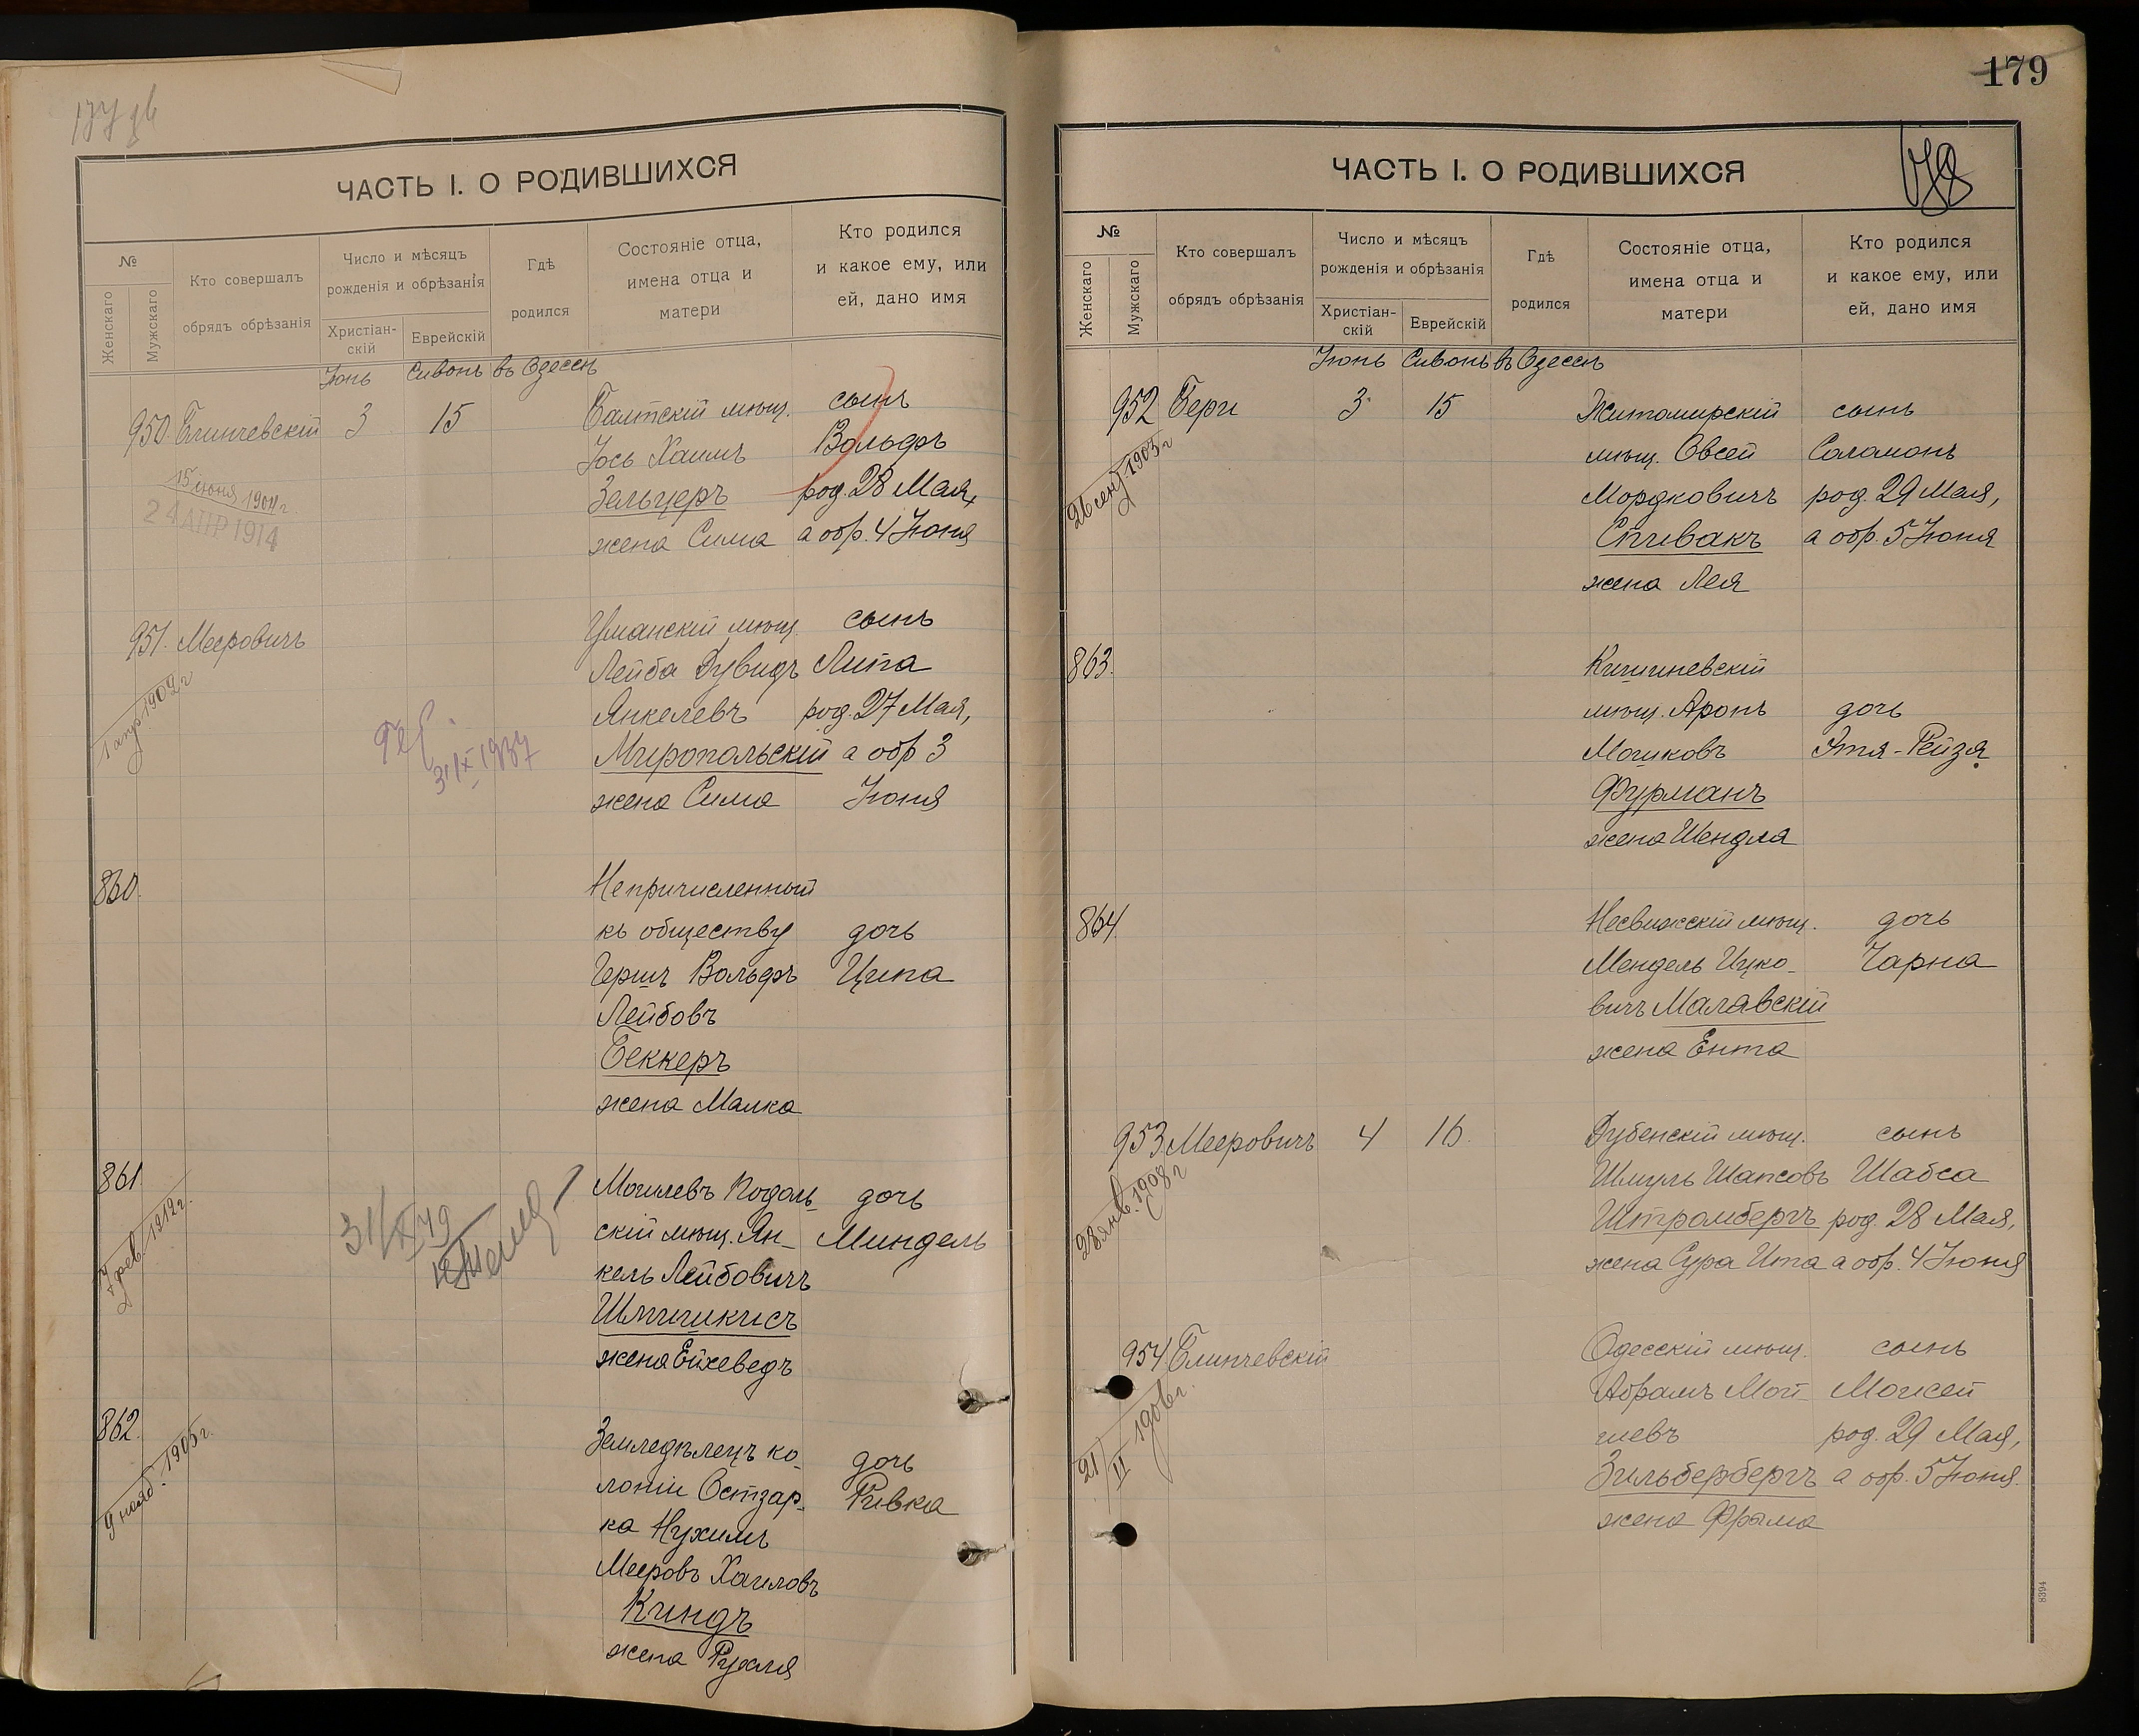 ЧАСТЬ I. О РОДИВШИХСЯ
№
Женскаго
Мужскаго
Кто совершалъ
обрядъ обрѣзанія
Число и мѣсяцъ
рожденія и обрѣзанія
Христіан-
скій
Еврейскій
Гдѣ
родился
Состояніе отца,
имена отца и
матери
Кто родился
и какое ему, или
ей, дано имя
Іюнь Сивонъ въ Одессѣ
950. Блинчевскій 3 15 Балтскій мѣщ. сынъ
Іось Хаимъ Вольфъ
Зельцеръ род. 28 Мая,
жена Сима а обр. 4 Іюня
15 іюня 1904 г.
24 АПР 1914
951. Мееровичъ Уманскій мѣщ. сынъ
Лейба Дувидъ Липа
Янкелевъ род. 27 Мая,
Миропольскій а обр 3
жена Сима Іюня
1 апр. 1902 г
31/X 1937
860. Непричисленный
къ обществу дочь
Гершъ Вольфъ Ципа
Лейбовъ
Беккеръ
жена Малка
861. Могилевъ Подоль-
скій мѣщ. Ян- дочь
кель Лейбовичъ Миндель
Шмишкисъ
жена Ейхеведъ
7 фев. 1912 г.
862. Земледѣлецъ ко-
лоніи Остзар- дочь
ка Нухимъ Ривка
Мееровъ Хаиловъ
Киндъ
жена Рухля
9 нояб. 1905 г.
179
ЧАСТЬ I. О РОДИВШИХСЯ
№
Женскаго
Мужскаго
Кто совершалъ
обрядъ обрѣзанія
Число и мѣсяцъ
рожденія и обрѣзанія
Христіан-
скій
Еврейскій
Гдѣ
родился
Состояніе отца,
имена отца и
матери
Кто родился
и какое ему, или
ей, дано имя
Іюнь Сивонъ въ Одессѣ
952 Бери 3 15 Житомирскій сынъ
мѣщ. Овсей Соломонъ
Мордковичъ род. 29 Мая,
Спивакъ а обр. 5 Іюня
жена Лея
26 сен. 1903 г
863. Кишиневскій
мѣщ. Аронъ дочь
Мошковъ Этя-Рейзя
Фурманъ
жена Шендля
864. Несвижскій мѣщ. дочь
Мендель Ицко- Чарна
вичъ Малявскій
жена Ента
953 Мееровичъ 4 16 Дубенскій мѣщ. сынъ
Шмуль Шапсовъ Шабса
Штромбергъ род. 28 Мая,
жена Сура Ита а обр. 4 Іюня
28 янв. 1908 г
954. Блинчевскій Одесскій мѣщ. сынъ
Абрамъ Мой- Моисей
шевъ род. 29 Мая,
Зильбербергъ а обр. 5 Іюня.
жена Фрима
21/II 1906 г.
8394